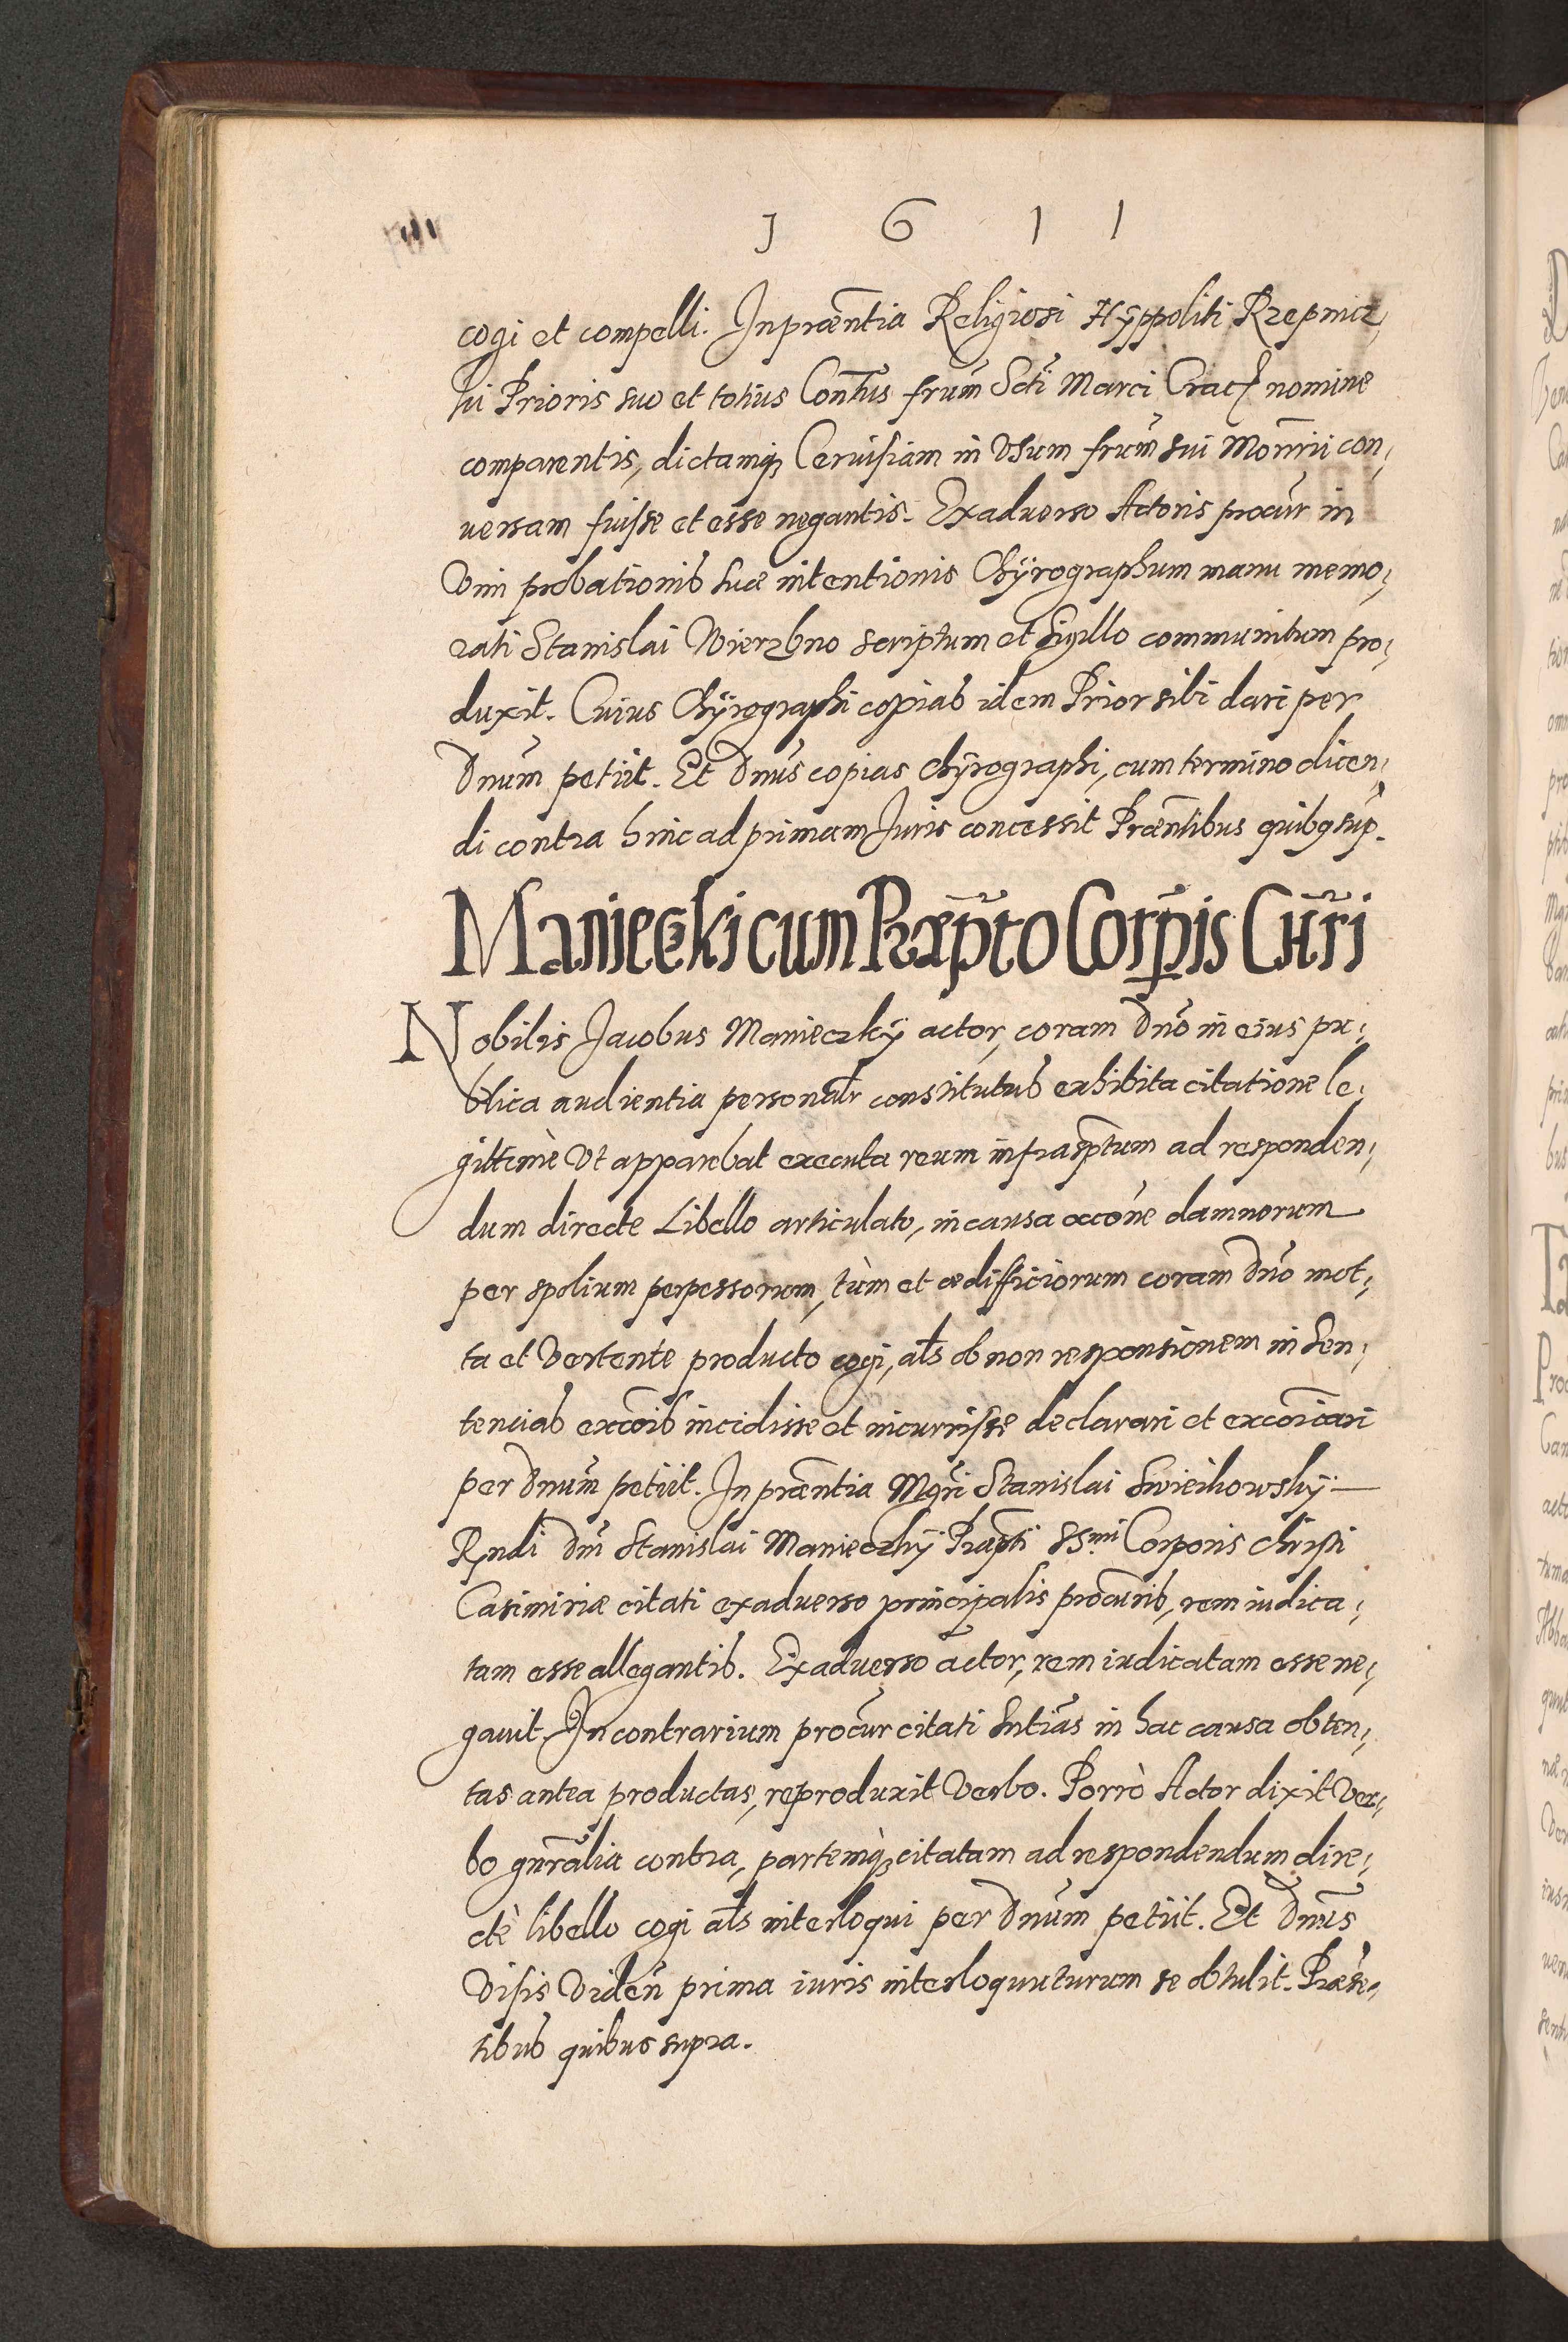 1 6 1 1
cogi et compelli. In præntia Religiosi Hÿppoliti Rzepnicz,
ki Prioris suo et totius Contus frum Scti Marci Crac. nomine
comparentis, dictamq; Ceruisiam in Vsum frum sui Monrii con,
uersam fuisse et esse negantis. Exaduerso Actoris procur in
Vim probationis suæ intentionis Chÿrographum manu memo,
rati Stanislai Wierzbno scriptum et sigillo communitum pro,
duxit. Cuius Chÿrographi copias idem Prior sibi dari per
Dnum petiit. Et Dnus copias chÿrographi, cum termino dicen,
di contra hinc ad primam Iuris concessit Præntibus quibq sup.
Manieczki cum Præpto Corpis Chri
Nobilis Jacobus Manieczkÿ actor, coram Dno in eius pu,
blica audientia personalr constitutus exhibita citatione le,
gittimè Vt apparebat executa reum infrasptum ad responden,
dum directe Libello articulato, in causa occone damnorum
per spolium perpessorum, tùm et ædifficiorum coram Dno mot,
ta et Vertente producto cogi, als ob non responsionem in sen,
tencias excois incidisse et incurrisse declarari et excoicari
per Dnum petiit. In præntia Mgri Stanislai Swieihowskÿ
Rndi Dni Stanislai Manieczkÿ Præpti SSmi Corporis christi
Casimiriæ citati exaduerso principalis procuris, rem iudica,
tam esse allegantis. Exaduerso actor, rem iudicatam esse ne,
gauit. In contrarium procur citati Sntias in hac causa obten,
tas antea productas, reproduxit Verbo. Porrò Actor dixit Ver,
bo gnralia contra, partemq; citatam ad respondendum dire,
ctè libello cogi als interloqui per Dnum petiit. Et Dnus
Visis Viden prima iuris interloquuturum se obtulit. Præsen,
tibus quibus supra.